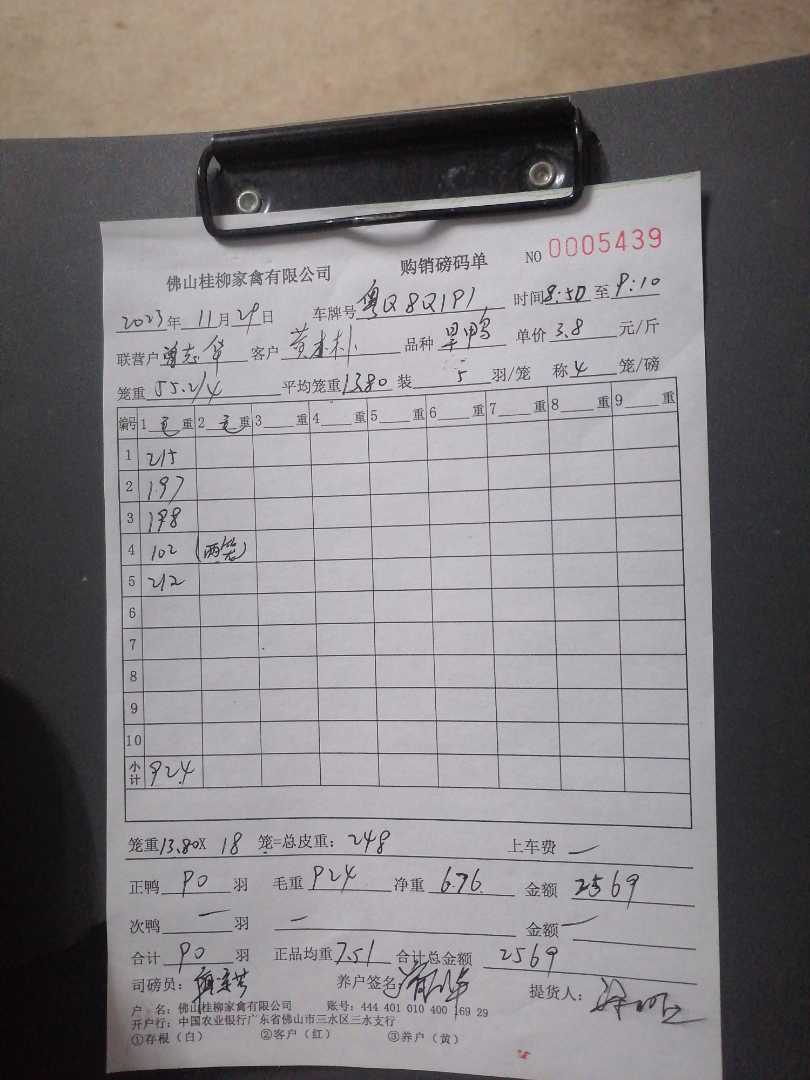 佛山桂柳家禽有限公司 购销磅码单 NO 0005439
2023年 11月29日 车牌号 粤Q8Q1P1 时间8:50至9:10
联营户 曾志华 客户 黄木朴 品种 旱鸭 单价 3.8 元/斤
笼重 55.2/4 平均笼重 13.80 装 5 羽/笼 称 4 笼/磅
编号 1 毛 重 2 毛 重 3 重 4 重 5 重 6 重 7 重 8 重 9 重
1 215
2 197
3 198
4 102 (两笼)
5 212
6
7
8
9
10
小计 924
笼重 13.80X 18 笼=总皮重: 248 上车费 —
正鸭 90 羽 毛重 924 净重 676 金额 2569
次鸭 — 羽 — 金额 —
合计 90 羽 正品均重 7.51 合计总金额 2569
司磅员: 养户签名 提货人:
户 名: 佛山桂柳家禽有限公司 账号: 444 401 010 400 169 29
开户行: 中国农业银行广东省佛山市三水区三水支行
①存根(白) ②客户(红) ③养户(黄)